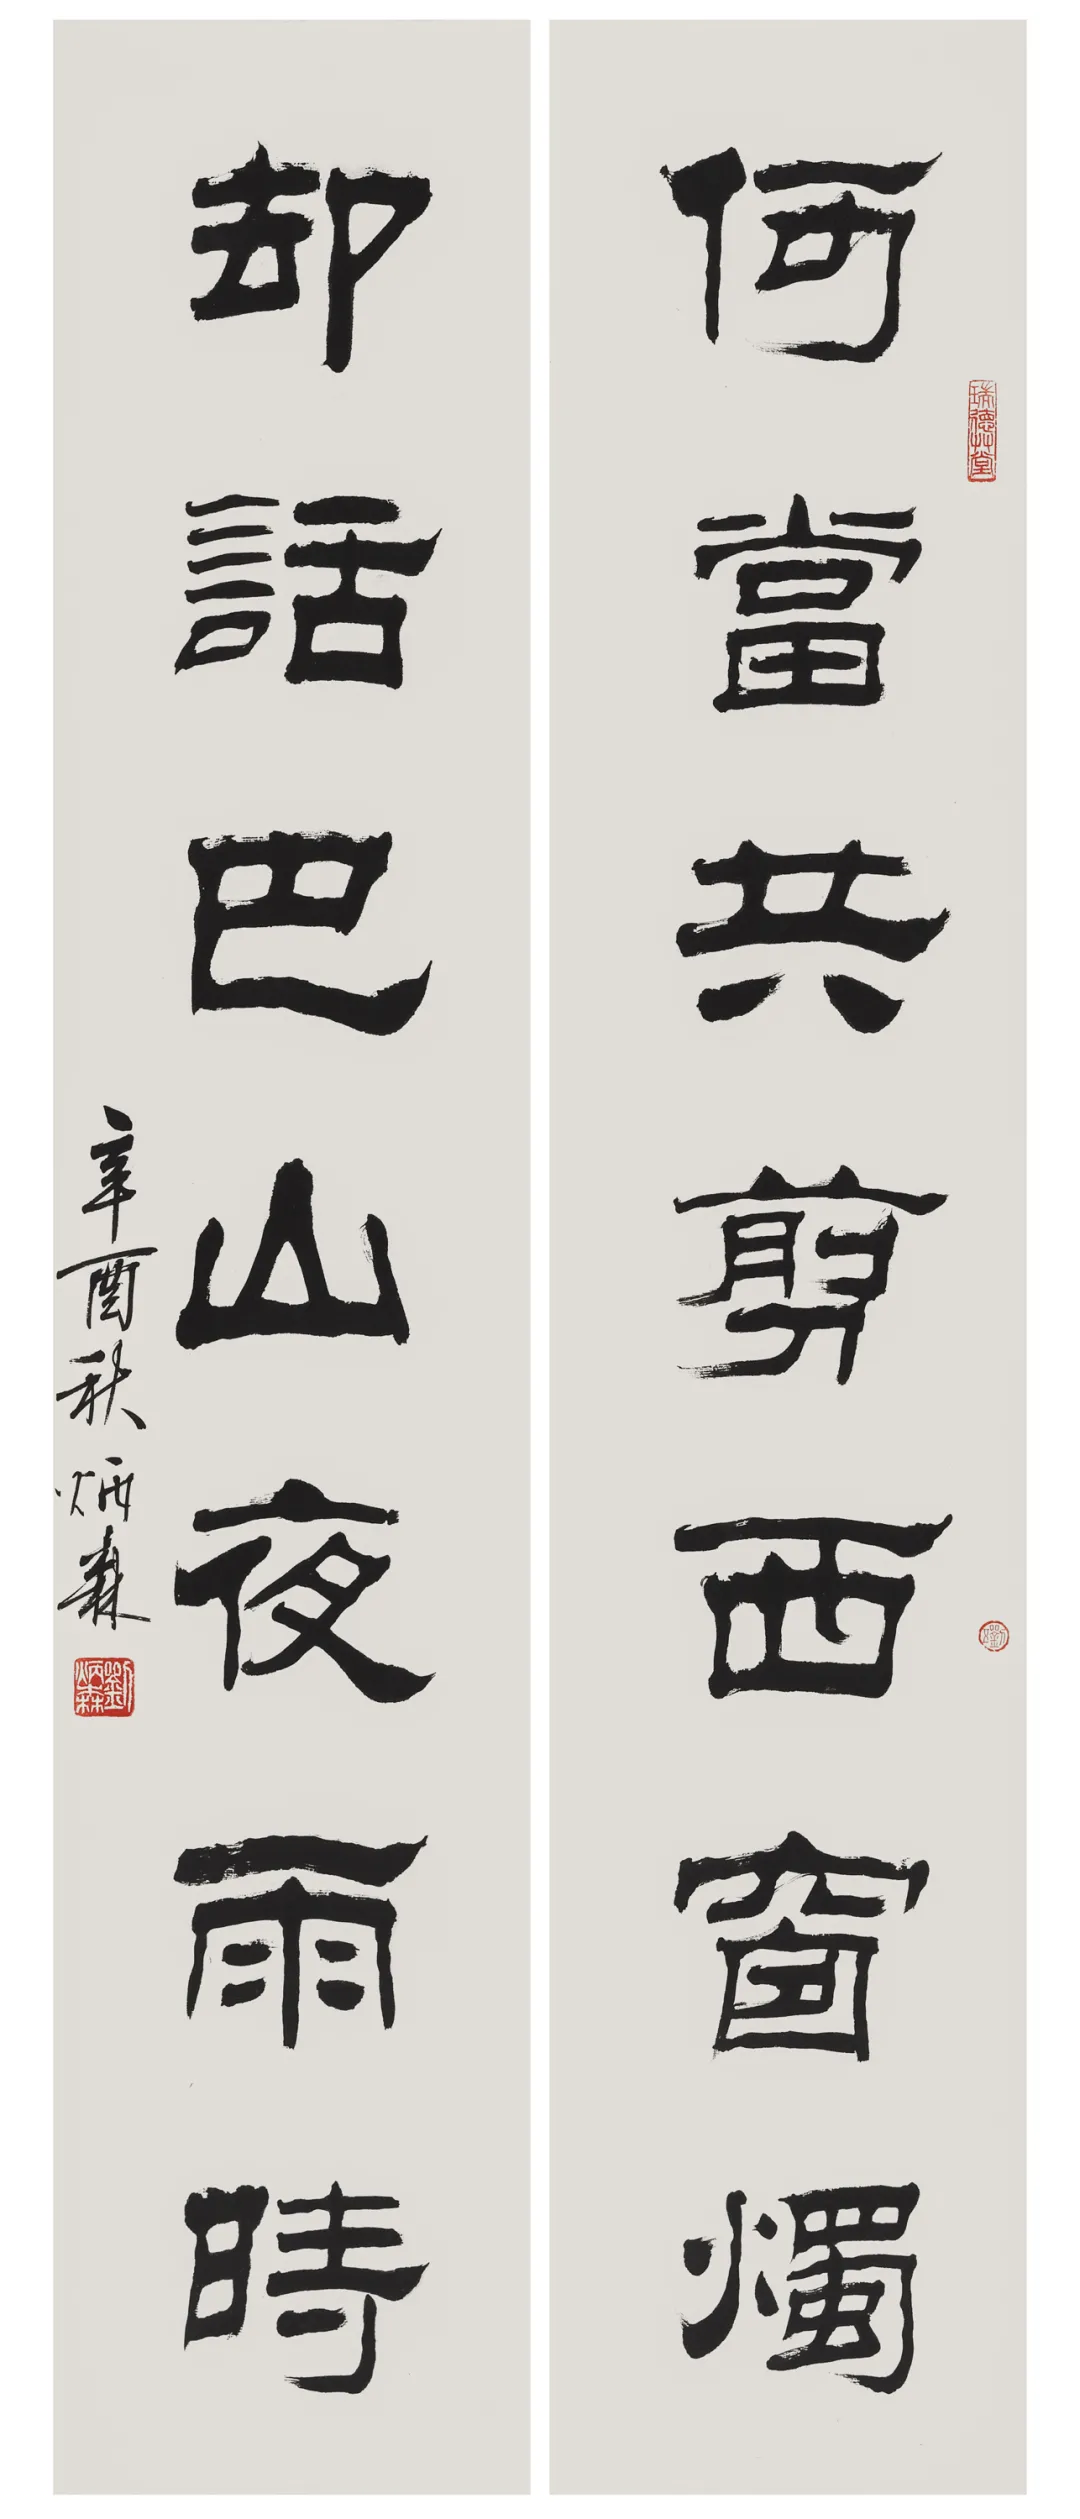 何當共剪西窗燭
瑞德堂
劉
却話巴山夜雨時
辛酉秋炳森
劉炳森